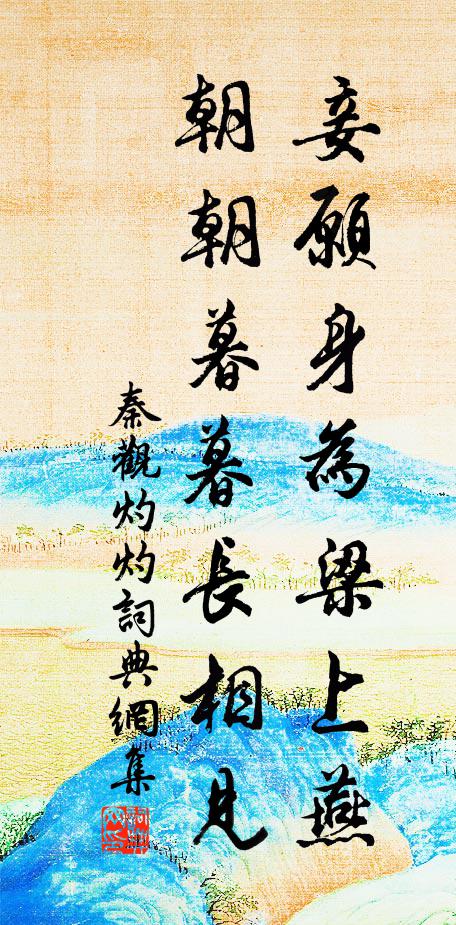 妾願身為梁上燕
朝朝暮暮長相見
秦觀灼灼詞典網集